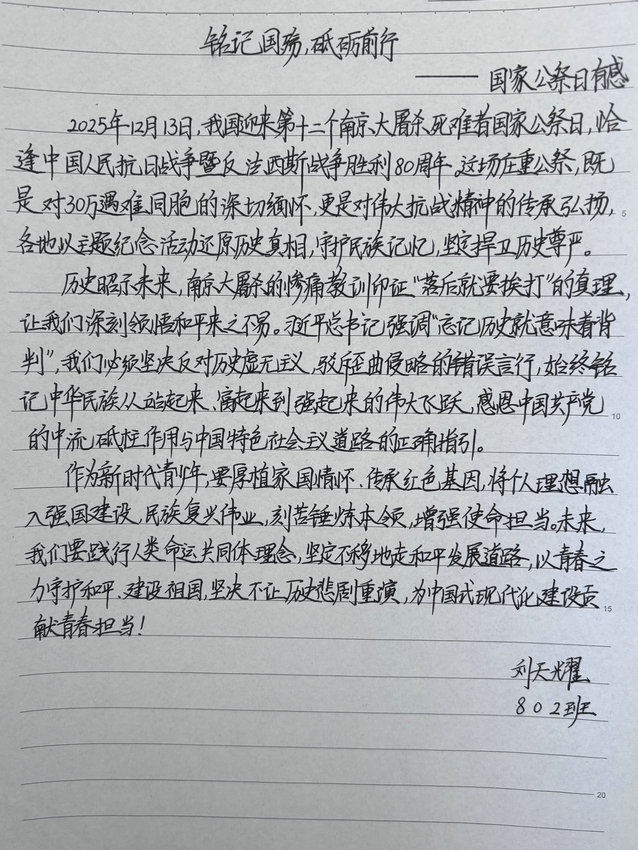 铭记国殇,砥砺前行
——国家公祭日有感
2025年12月13日,我国迎来第十二个南京大屠杀死难者国家公祭日,恰
逢中国人民抗日战争暨反法西斯战争胜利80周年。这场庄重公祭,既
是对30万遇难同胞的深切缅怀,更是对伟大抗战精神的传承弘扬,
5
各地以主题纪念活动还原历史真相,守护民族记忆,坚定捍卫历史尊严。
历史昭示未来,南京大屠杀的惨痛教训印证“落后就要挨打”的真理,
让我们深刻领悟和平来之不易。习近平总书记强调“忘记历史就意味着背
判”,我们必须坚决反对历史虚无主义,驳斥歪曲侵略的错误言行,始终铭
记中华民族从站起来、富起来到强起来的伟大飞跃,感恩中国共产党
10
的中流砥柱作用与中国特色社会主义道路的正确指引。
作为新时代青少年,要厚植家国情怀、传承红色基因,将个人理想融
入强国建设、民族复兴伟业,刻苦锤炼本领,增强使命担当。未来,
我们要践行人类命运共同体理念,坚定不移地走和平发展道路,以青春之
力守护和平、建设祖国,坚决不让历史悲剧重演,为中国式现代化建设贡
15
献青春担当!
刘天耀
802班
20